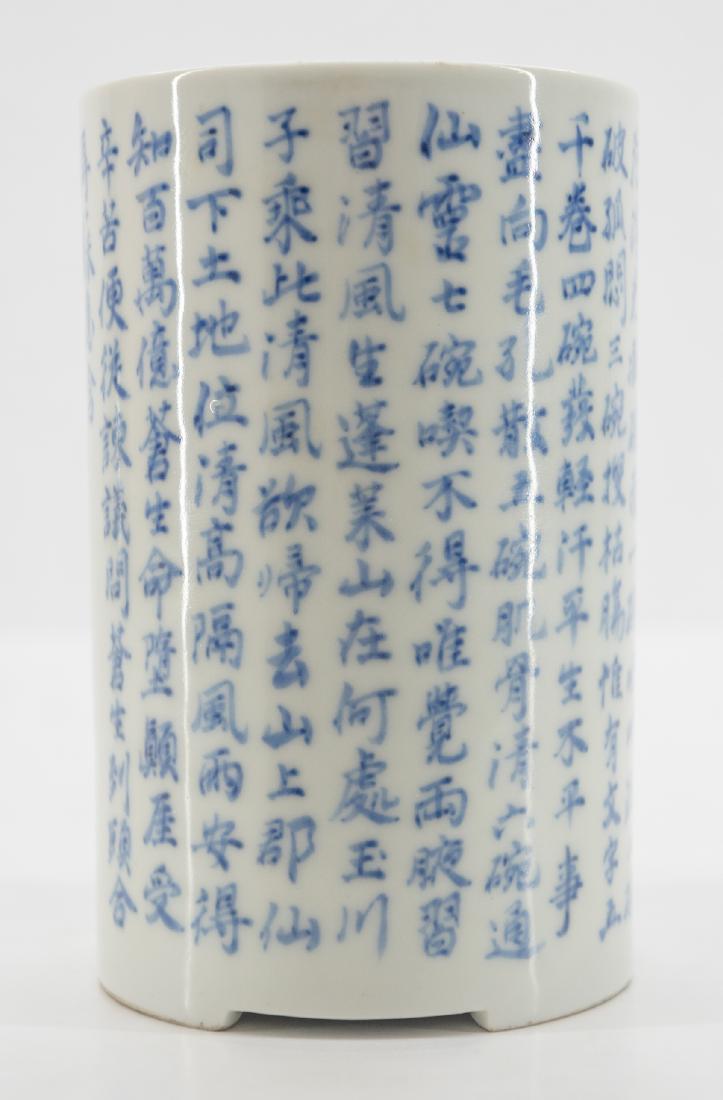 破孤悶三碗搜枯腸惟有文字五
千卷四碗發輕汗平生不平事
盡向毛孔散五碗肌骨清六碗通
仙靈七碗喫不得唯覺兩腋習
習清風生蓬萊山在何處玉川
子乘此清風欲歸去山上郡仙
司下土地位清高隔風雨安得
知百萬億蒼生命墮顛崖受
辛苦便從諫議問蒼生到頭合